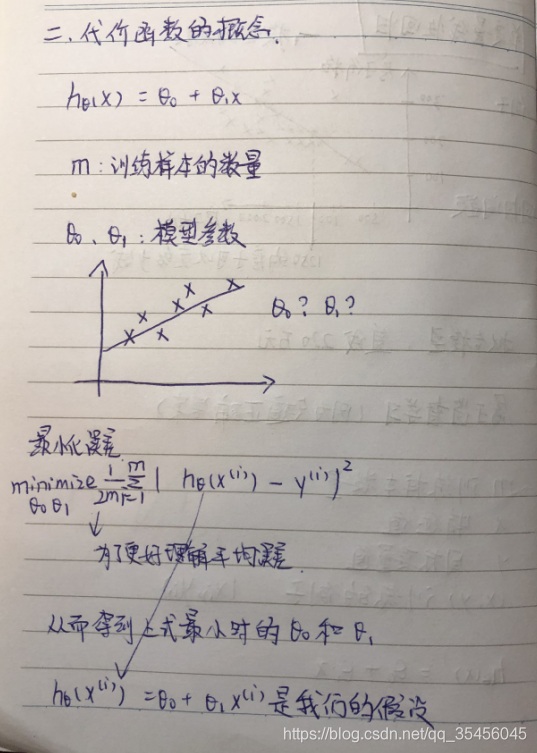 二、代价函数的概念.
hθ(x) = θ0 + θ1x
m：训练样本的数量
θ0、θ1：模型参数
θ0？ θ1？
最小化误差
minimize 1/2m Σ i=1 m ( hθ(x^(i)) - y^(i) )^2
θ0 θ1
为了更好理解平均误差.
从而得到上式最小时的 θ0 和 θ1
hθ(x^(i)) = θ0 + θ1 x^(i) 是我们的假设
https://blog.csdn.net/qq_35456045